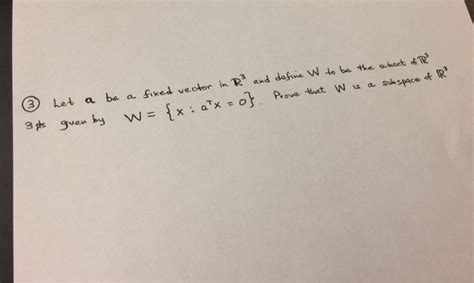 ③ Let a be a fixed vector in ℝ³ and define W to be the subset of ℝ³
3 pts given by W = {x : aᵀx = 0}. Prove that W is a subspace of ℝ³